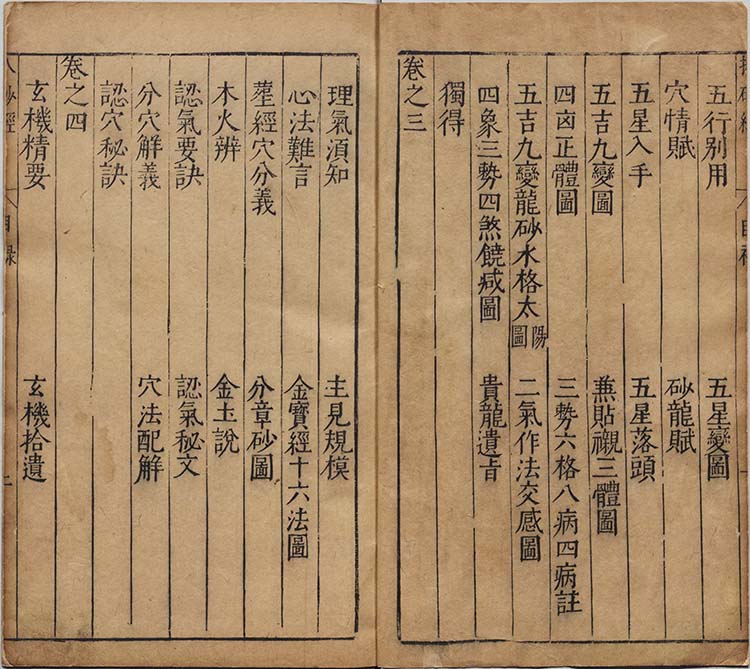 五行別用　五星變圖
穴情賦　砂龍賦
五星入手　五星落頭
五吉九變圖　兼貼襯三體圖
四卤正體圖　三勢六格八病四病註
五吉九變龍砂水格太陽圖　二氣作法交感圖
四象三勢四煞饒减圖　貴龍遺旨
獨得
卷之三
理氣湏知　主見規模
心法難言　金寶經十六法圖
塟經穴分義　分章砂圖
木火辨　金圡說
認氣要訣　認氣秘文
分穴解義　穴法配解
認穴秘訣
卷之四
玄機精要　玄機拾遺
砂經　目錄